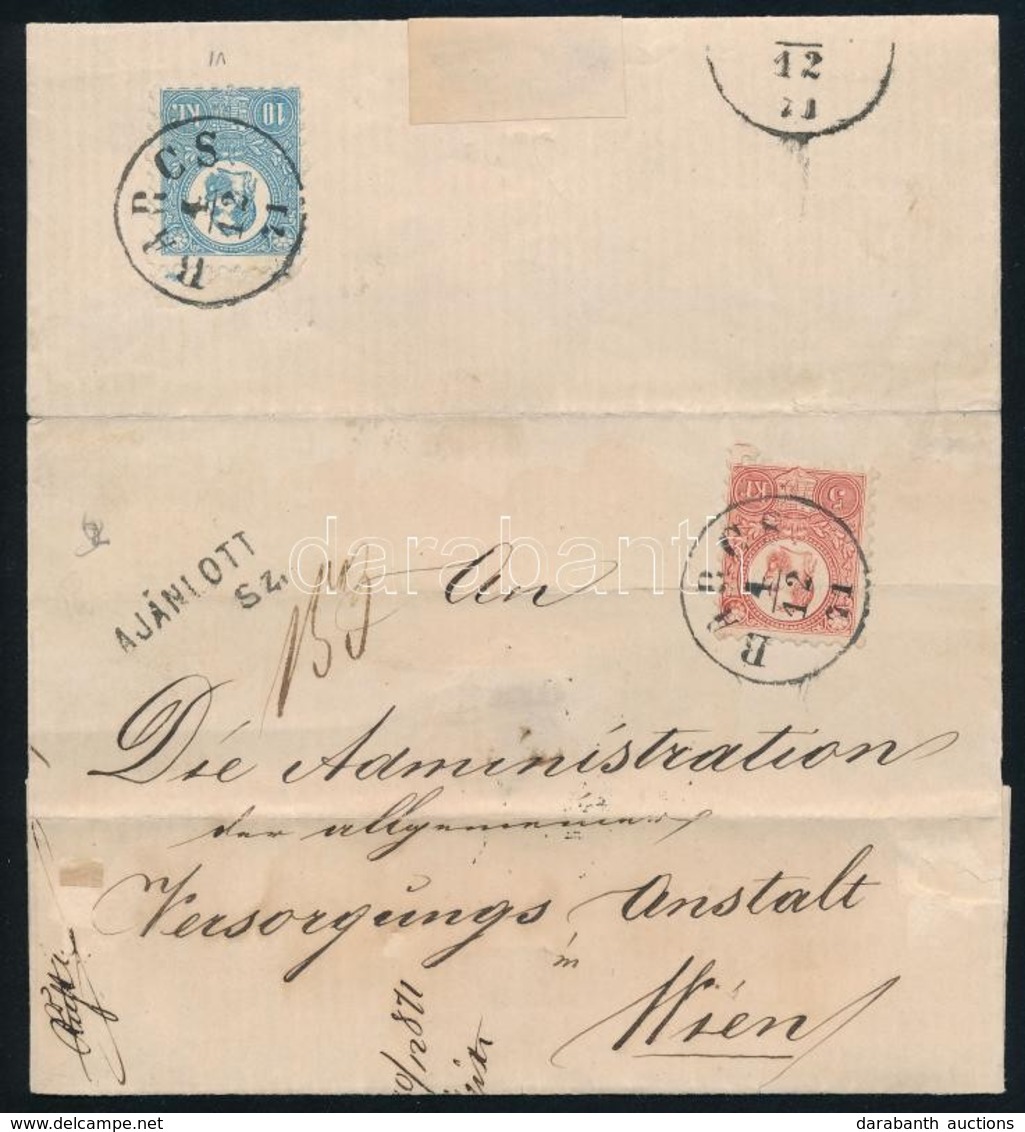 10 KR
BARCS
1
12
71
12
71
5 KR
BARCS
1
12
71
darabanth
AJÁNLOTT
Sz.
An
Die Administration
der allgemeinen
Versorgungs Anstalt
in
Wien
12 871
delcampe.net
darabanth auctions